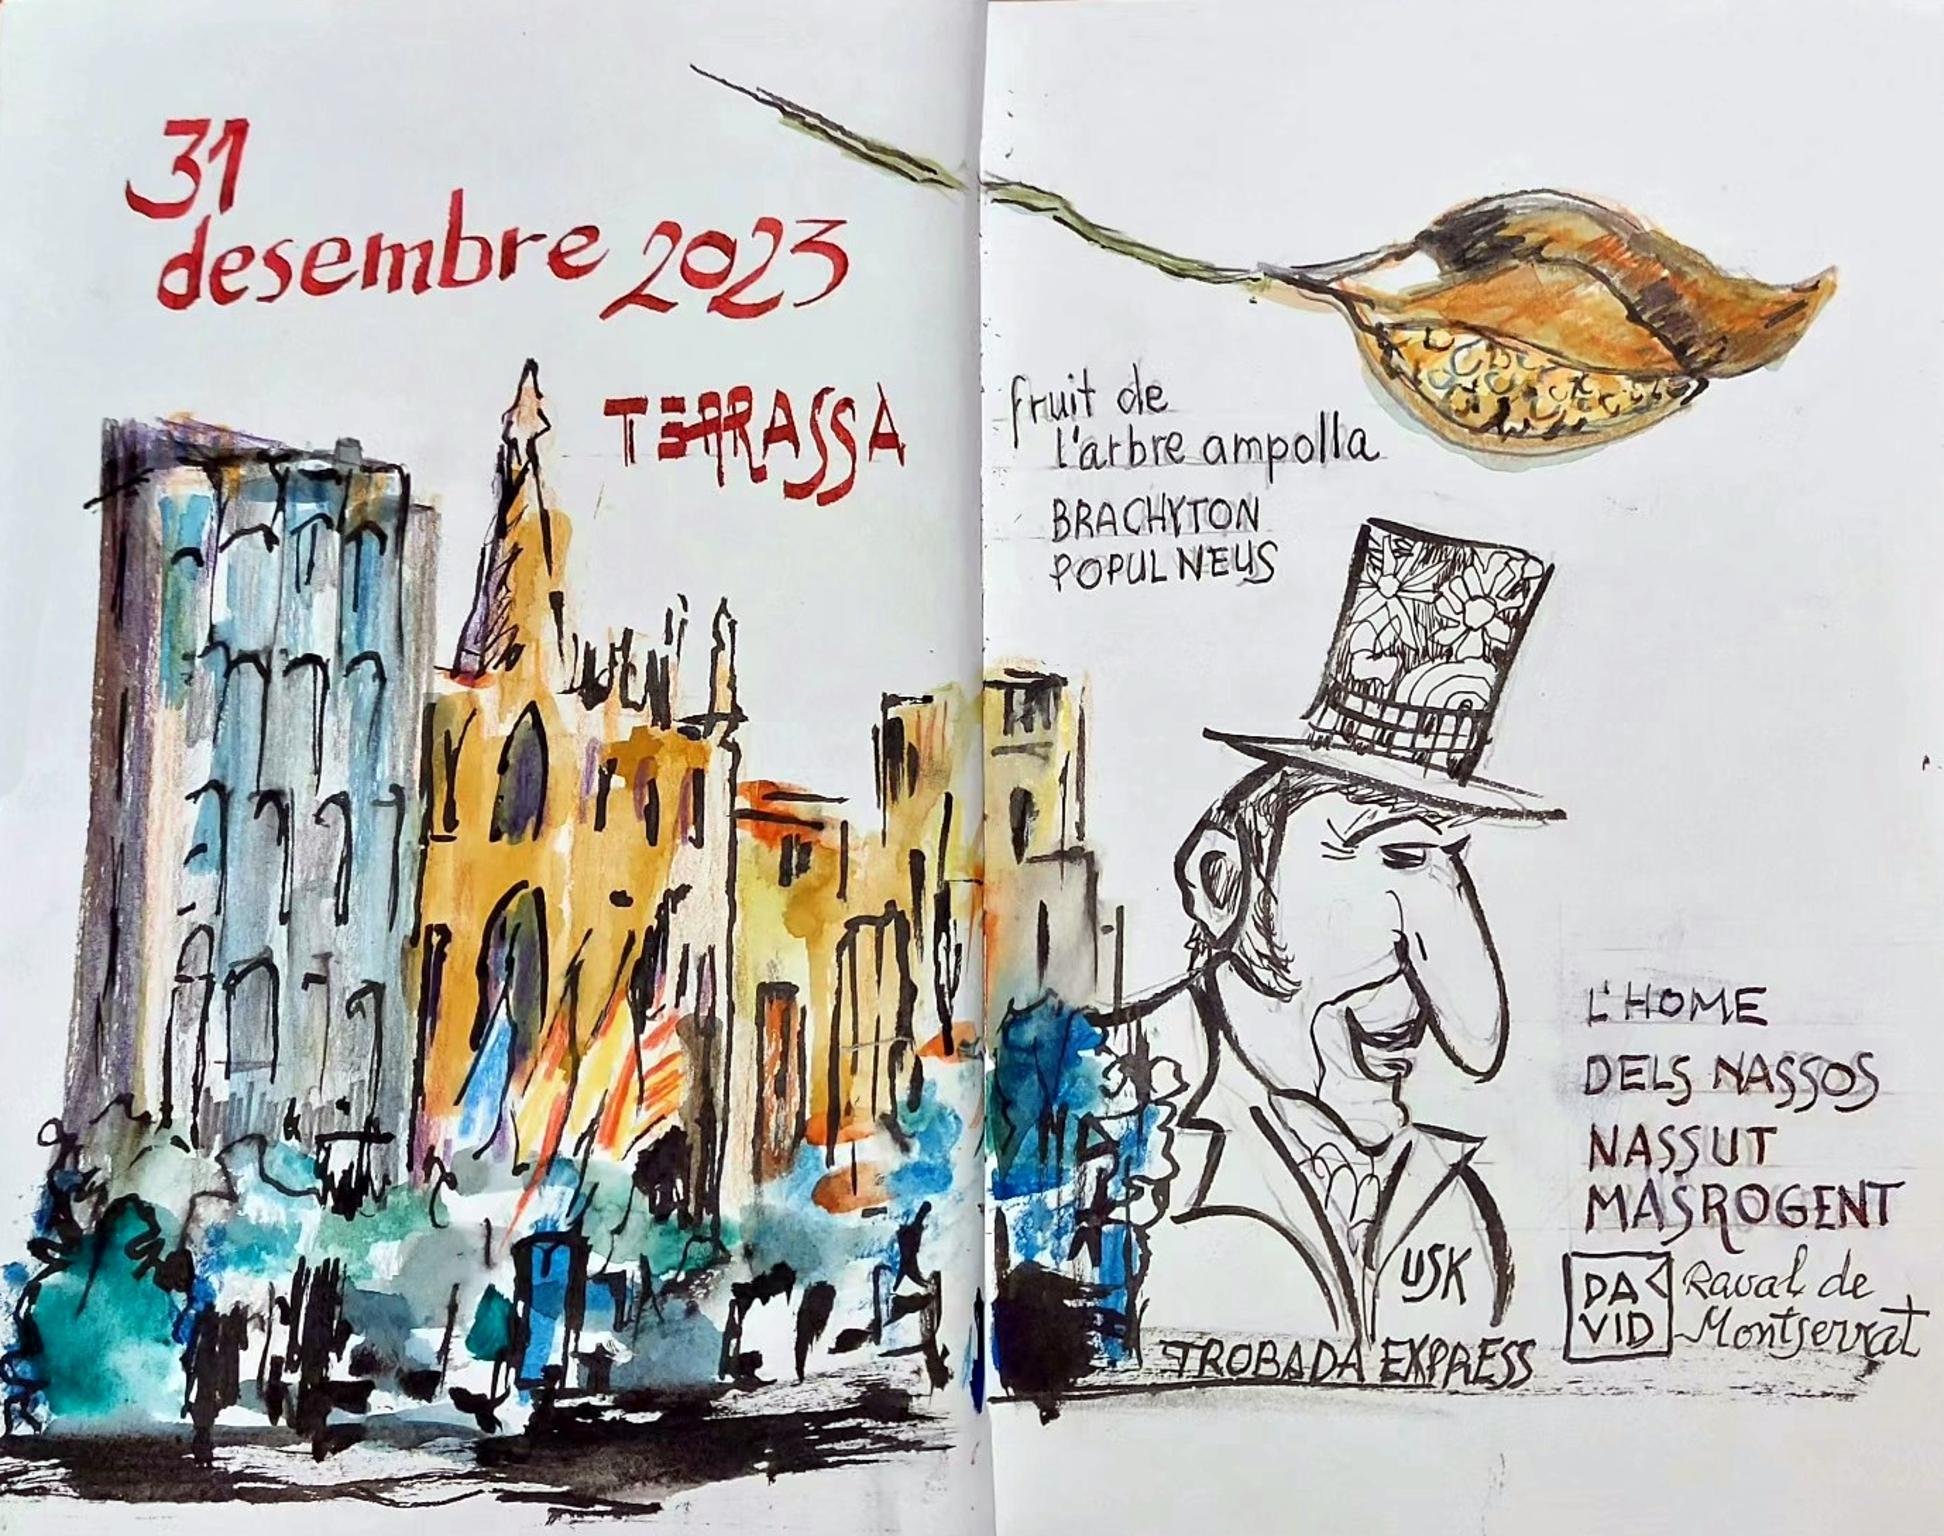 31
desembre 2023
TERRASSA
fruit de
l'arbre ampolla
BRACHYTON
POPULNEUS
L'HOME
DELS NASSOS
NASSUT
MASROGENT
DA
VID
Raval de
Montserrat
USK
TROBADA EXPRESS